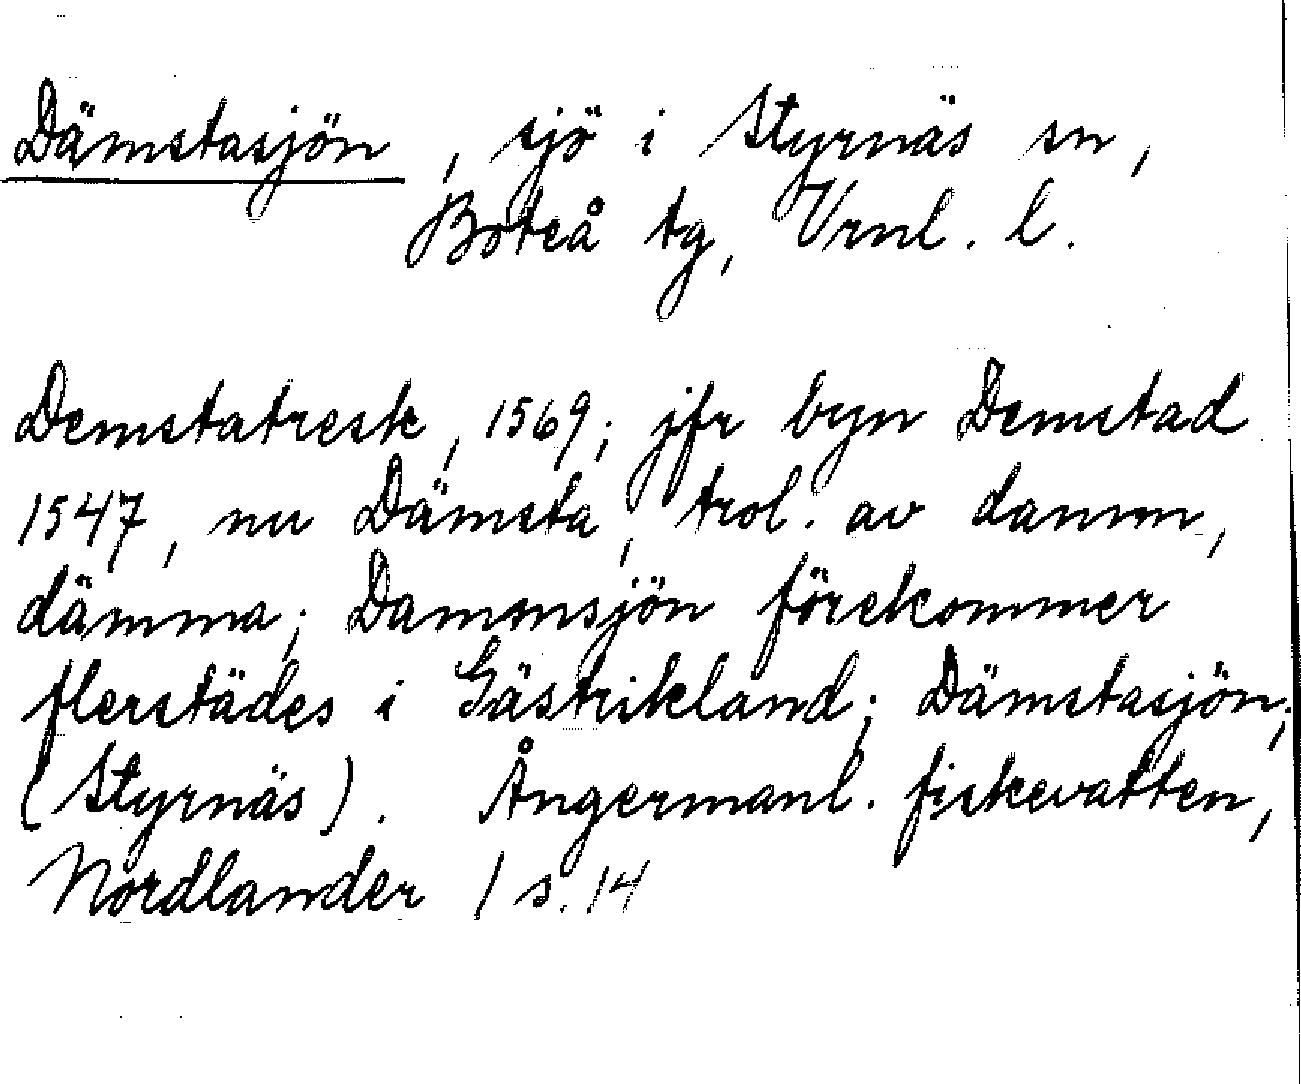 Dämstasjön, sjö i Styrnäs sn,
Boteå tg, Vrnl. l.
Demstatresk, 1569; jfr byn Demstad
1547, nu Dämsta, trol. av damm,
dämma; Dammsjön förekommer
flerstädes i Gästrikland; Dämstasjön;
(Styrnäs). Ångermanl. fiskevatten,
Nordlander 1 s. 14